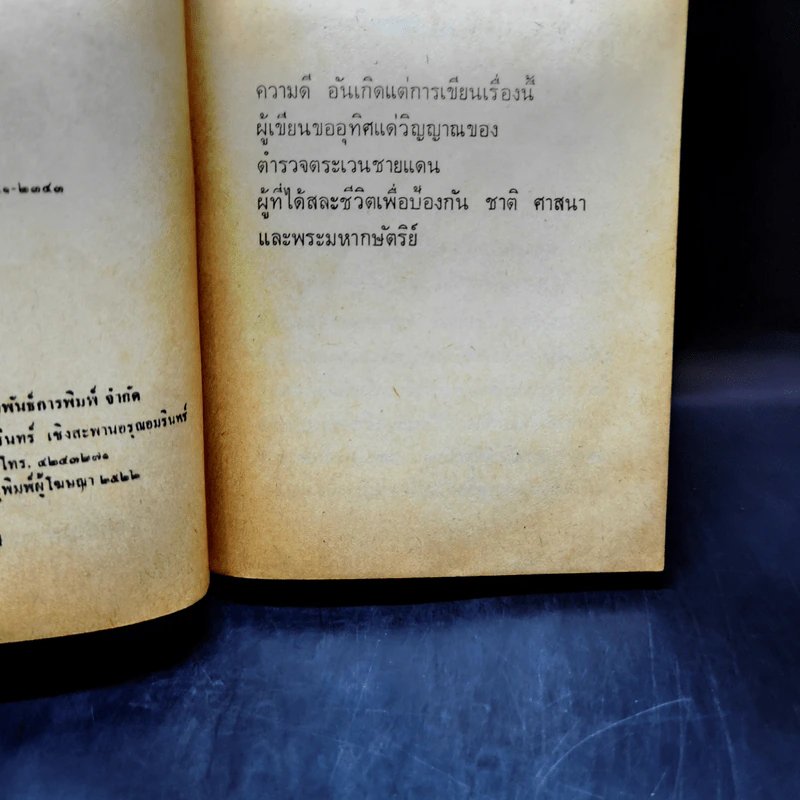 ๑-๒๓๔๓
พันธ์การพิมพ์ จำกัด
รินทร์ เชิงสะพานอรุณอมรินทร์
โทร. ๔๒๔๓๒๗๑
พิมพ์ผู้โฆษณา ๒๕๒๒
ความดี อันเกิดแต่การเขียนเรื่องนี้
ผู้เขียนขออุทิศแด่วิญญาณของ
ตำรวจตระเวนชายแดน
ผู้ที่ได้สละชีวิตเพื่อป้องกัน ชาติ ศาสนา
และพระมหากษัตริย์